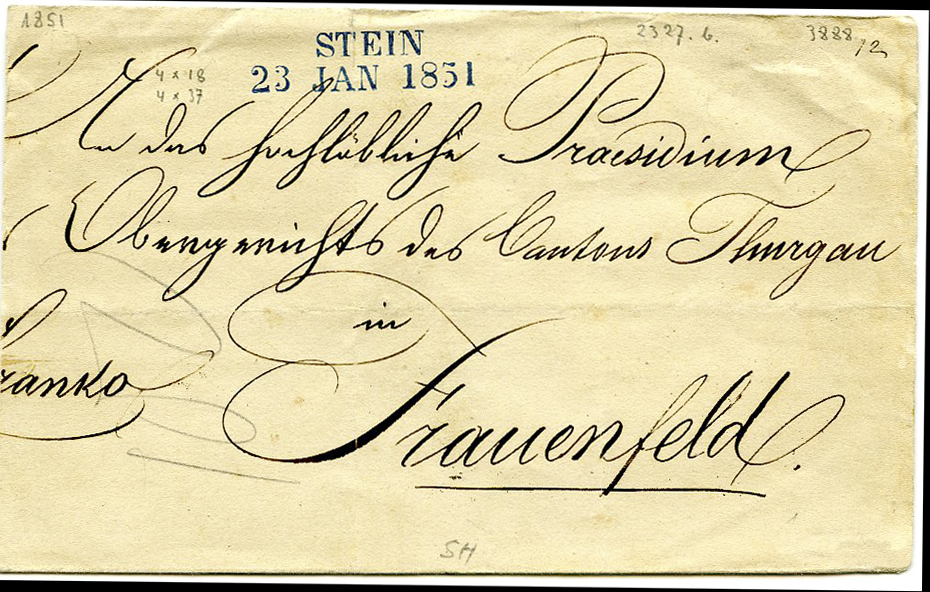 1851
2327. 6.
3888
/2
STEIN
23 JAN 1851
4 x 18
4 x 37
An das hochlöbliche Praesidium
Obergerichts des Cantons Thurgau
in
ranko
Frauenfeld.
SH